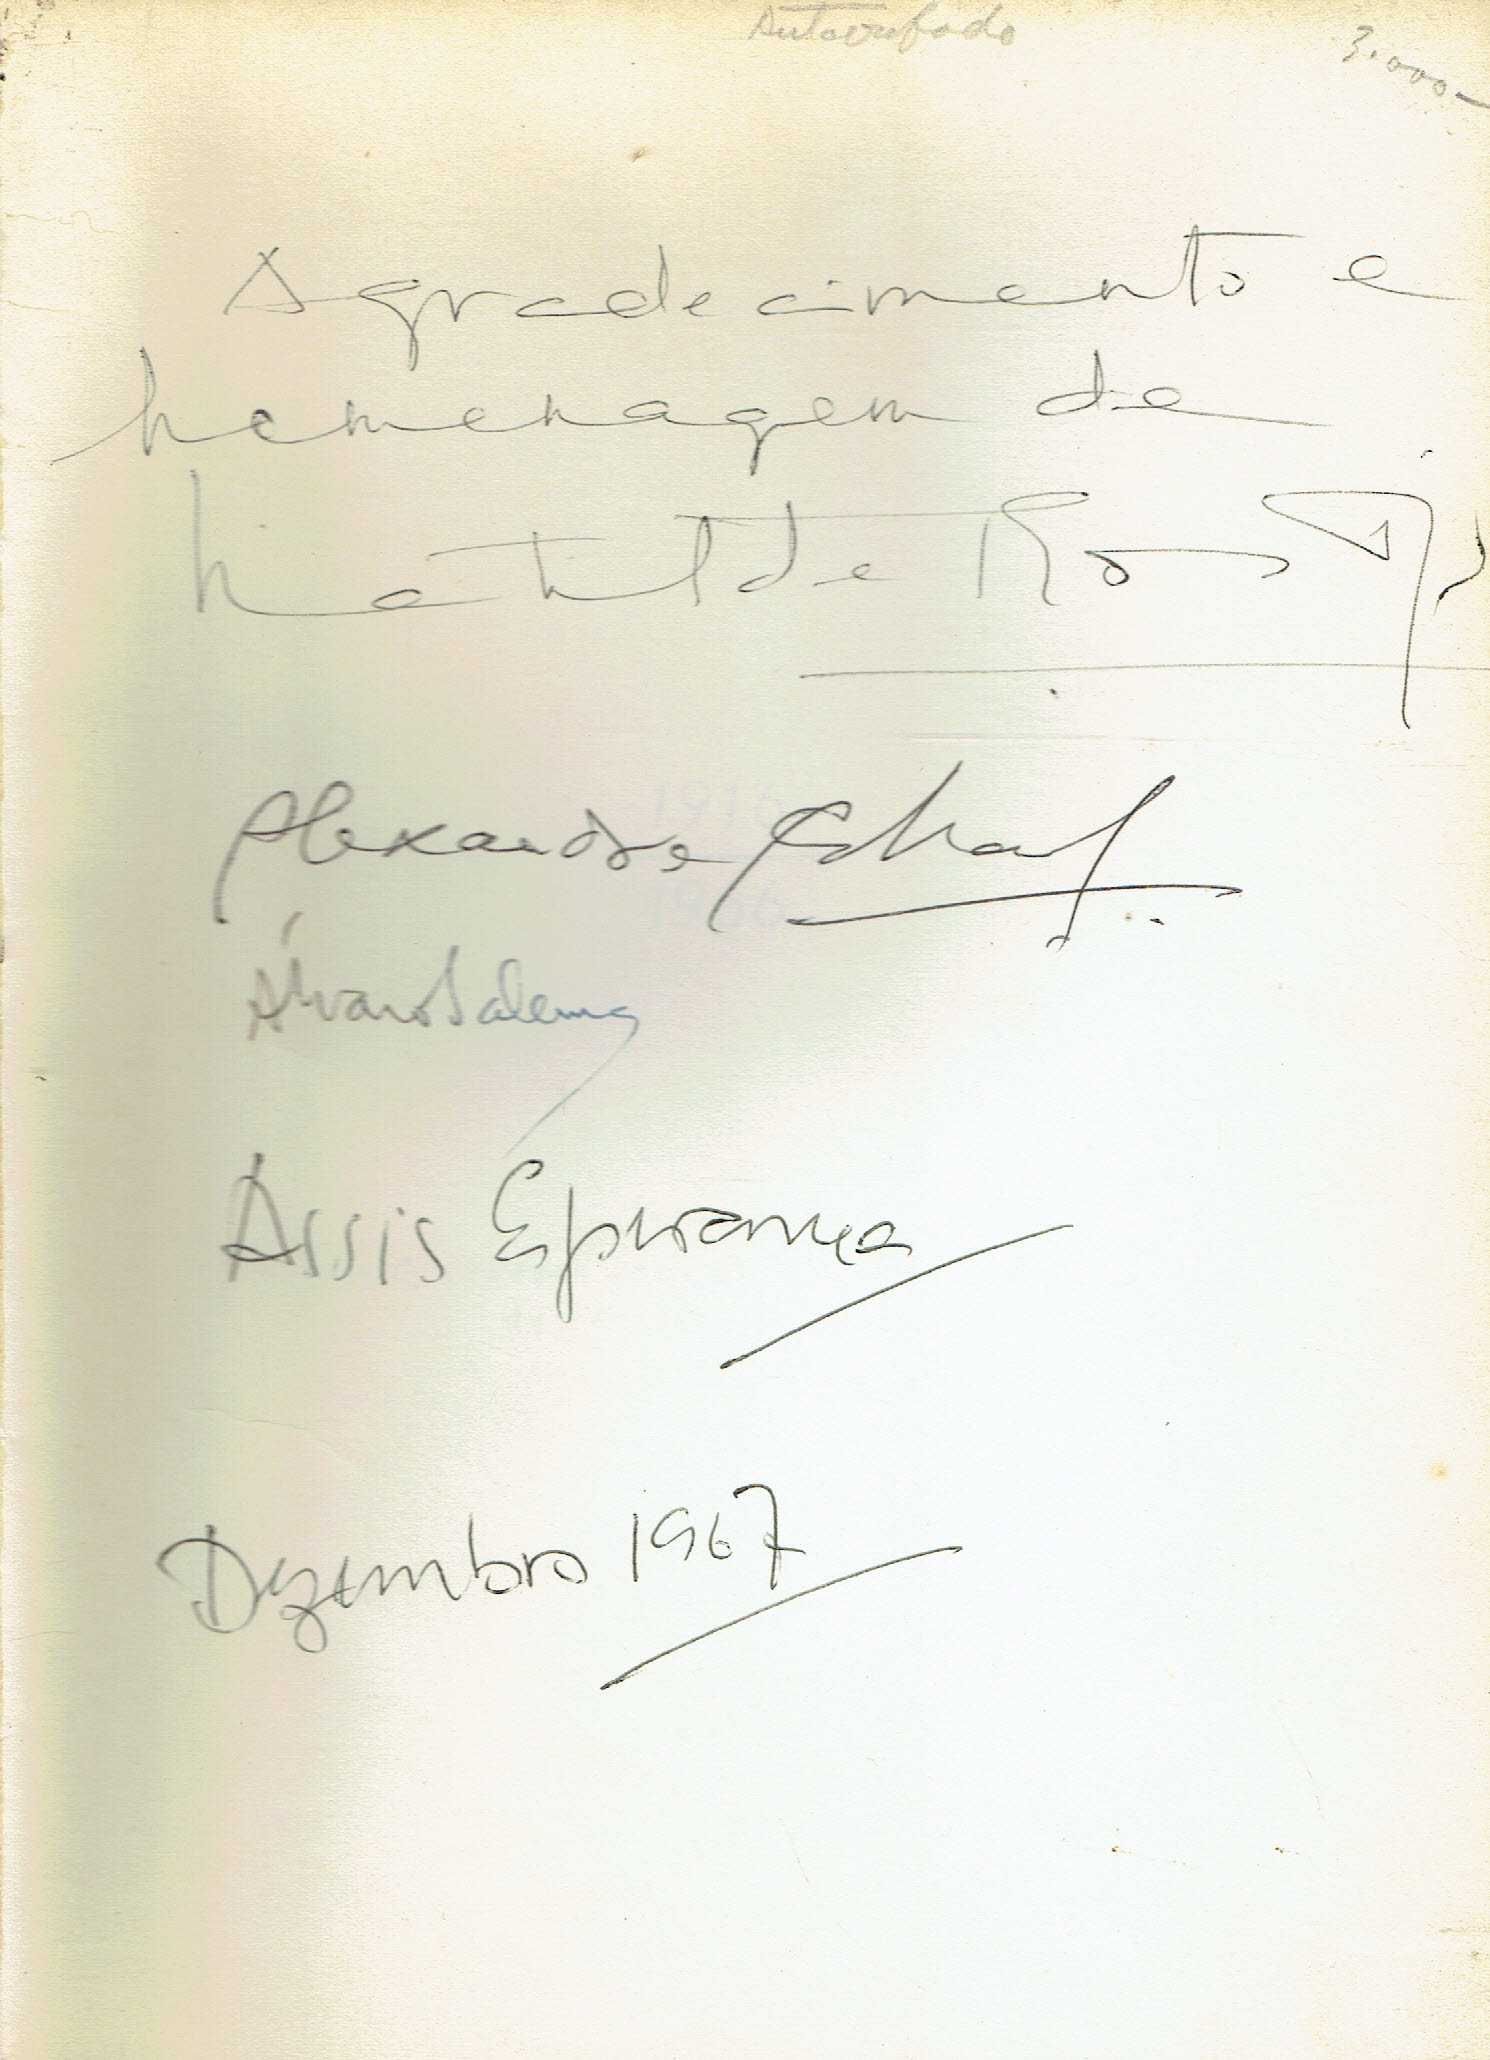 Autografado
3.000-
Agradecimento e
homenagem de
Matilde Rosa
Alexandre Cabral
Álvaro Salema
Assis Esperança
Dezembro 1967